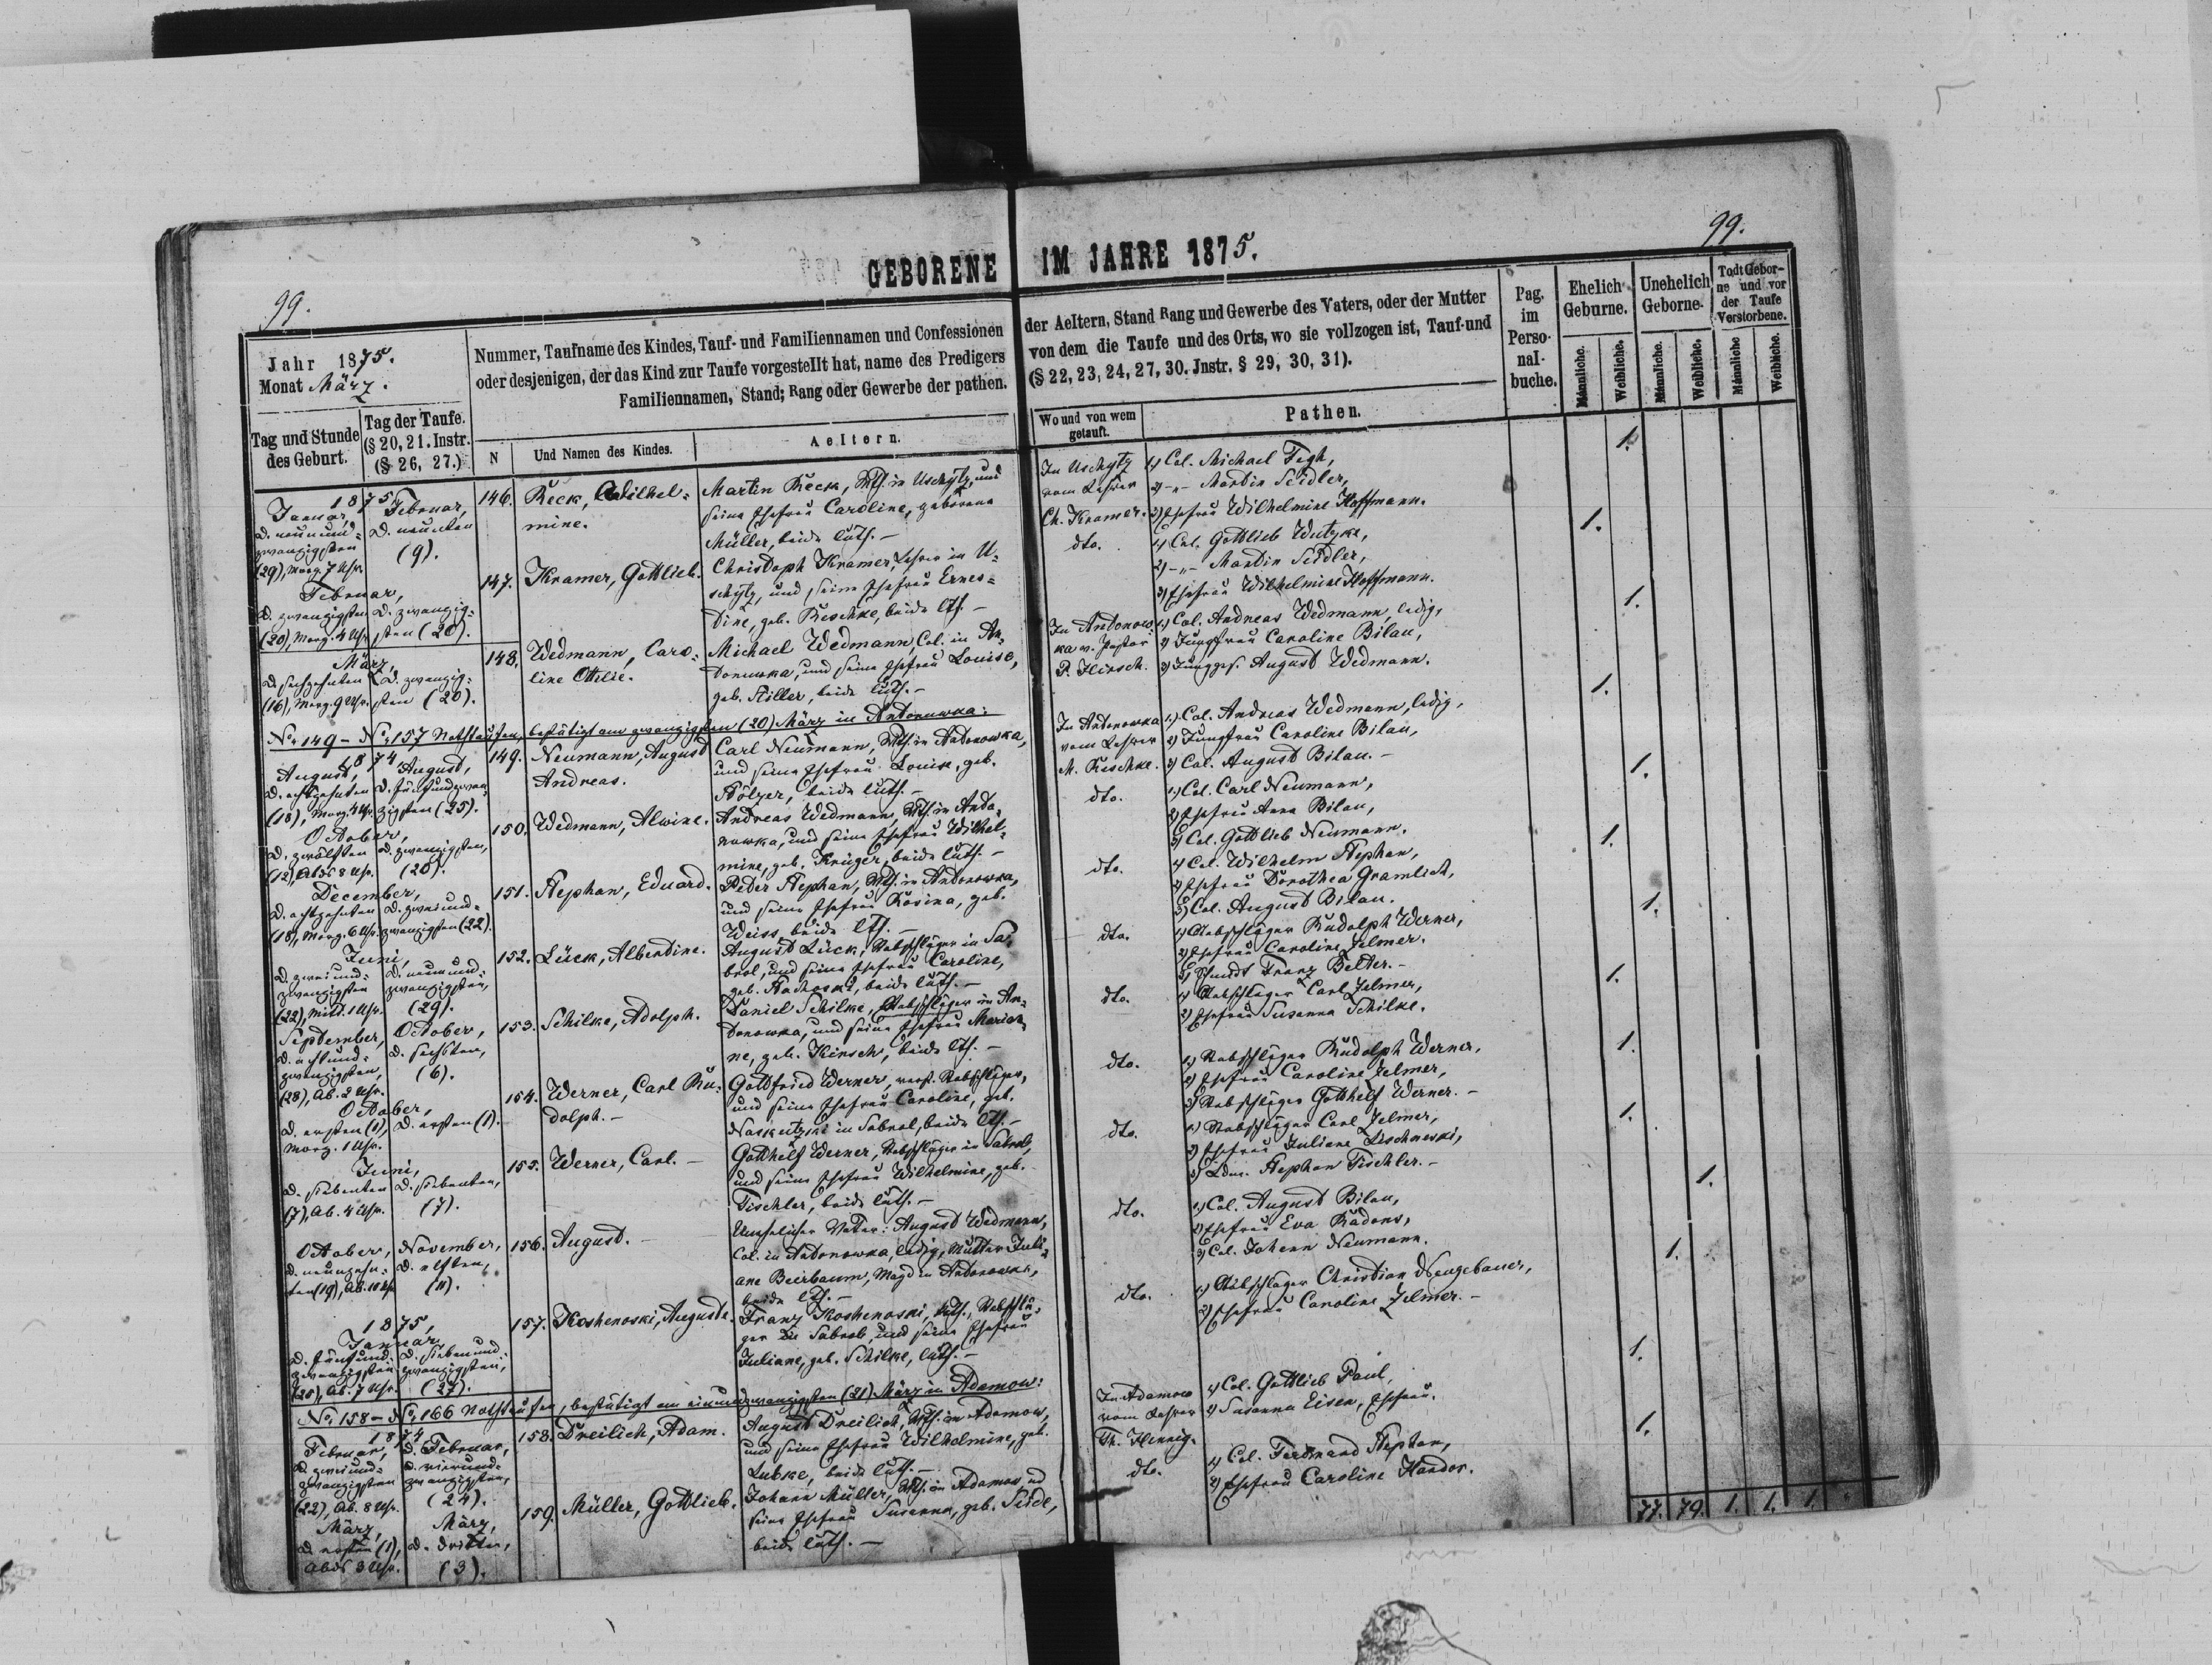 99.
99.
GEBORENE IM JAHRE 1875.
Jahr 1875.
Monat März.
Tag und Stunde des Geburt.
Tag der Taufe. (§ 20, 21. Instr. (§ 26, 27.)
Nummer, Taufname des Kindes, Tauf- und Familiennamen und Confessionen
oder desjenigen, der das Kind zur Taufe vorgestellt hat, name des Predigers
Familiennamen, Stand; Rang oder Gewerbe der pathen.
N
Und Namen des Kindes.
Aeltern.
der Aeltern, Stand Rang und Gewerbe des Vaters, oder der Mutter
von dem die Taufe und des Orts, wo sie vollzogen ist, Tauf-und
(§ 22, 23, 24, 27, 30. Jnstr. § 29, 30, 31).
Wo und von wem getauft.
Pathen.
Pag. im Perso- nal- buche.
Ehelich Geburne.
Unehelich Geborne.
Todt Gebor- ne und vor der Taufe Verstorbene.
Männliche.
Weibliche.
Männliche.
Weibliche.
Männliche
Weibliche.
1875
Januar,
D. neunund-
zwanzigsten
(29), Morg. 7 Uhr.
Februar,
D. neunten
(9).
146.
Reck, Wilhel-
mine.
Martin Reck, Wth. in Uschytz, und
seine Ehefrau Caroline, geborene
Müller, beide luth. –
In Uschytz
vom Lehrer
Ch. Kramer.
1) Col. Michael
2) -"- Martin Seidler,
3) Ehefrau Wilhelmine Hoffmann.
1.
Februar,
D. zwanzigsten
(20), Morg. 4 Uhr.
D. zwanzig-
sten (20).
147.
Kramer, Gottlieb.
Christoph Kramer, Lehrer in U-
schytz, und seine Ehefrau Ernes-
tine, geb. Reschke, beide lth. –
dto.
1) Col. Gottlieb Wutzke,
2) -"- Martin Seidler,
3) Ehefrau Wilhelmine Hoffmann.
1.
März,
D. sechzehnten
(16), Morg. 9 Uhr.
D. zwanzig-
sten (20).
148.
Wedmann, Caro-
line Ottilie.
Michael Wedmann, Col. in An-
tonuwka, und seine Ehefrau Louise,
geb. Stiller, beide luth. –
In Antonow-
ka v. Pastor
P. Hirsch.
1) Col. Andreas Wedmann, ledig,
2) Jungfrau Caroline Bilau,
3) Jungges. August Wedmann.
1.
No 149 – No 157 Nothtaufen, bestätigt am zwanzigsten (20) März in Antonuwka:
1874
August,
D. achtzehnten
(18), Morg. 4 Uhr.
August,
D. fünfundzwan-
zigsten (25).
149.
Neumann, August
Andreas.
Carl Neumann, Wth. in Antonowka,
und seine Ehefrau Louise, geb.
Stölzer, beide luth. –
In Antonowka
vom Lehrer
M. Reschke.
1) Col. Andreas Wedmann, ledig,
2) Jungfrau Caroline Bilau,
3) Col. August Bilau. –
1.
October,
D. zwölften
(12), Abds 8 Uhr.
D. zwanzigsten,
(20).
150.
Wedmann, Alwine.
Andreas Wedmann, Wth. in Anto-
nowka, und seine Ehefrau Wilhel-
mine, geb. Krüger, beide luth. –
dto.
1) Col. Carl Neumann,
2) Ehefrau Anna Bilau,
3) Col. Gottlieb Neumann.
1.
December,
D. achtzehnten
(18), Morg. 6 Uhr.
D. zweiund-
zwanzigsten (22).
151.
Stephan, Eduard.
Peter Stephan, Wth. in Antonowka,
und seine Ehefrau Rosina, geb.
Weiss, beide lth. –
dto.
1) Col. Wilhelm Stephan,
2) Ehefrau Dorothea Gramlich,
3) Col. August Bilau.
1.
Juni,
D. zweiund-
zwanzigsten
(22), Mitt. 1 Uhr.
D. neunund-
zwanzigsten,
(29).
152.
Lück, Albertine.
August Lück, Stabschläger in Sa-
brol, und seine Ehefrau Caroline,
geb. beide luth. –
dto.
1) Stabschläger Rudolph Werner,
2) Ehefrau Caroline Zelmer.
3) Franz Belter. –
1.
September,
D. achtund-
zwanzigsten,
(28), Ab. 2 Uhr.
October,
D. sechsten,
(6).
153.
Schilke, Adolph.
Daniel Schilke, Stabschläger in An-
tonowka, und seine Ehefrau Marian-
ne, geb. Hirsch, beide lth. –
dto.
1) Stabschläger Carl Zelmer,
2) Ehefrau Susanna Schilke.
1.
October,
D. ersten (1),
Morg. 1 Uhr.
D. ersten (1).
154.
Werner, Carl Ru-
dolph. –
Gottfried Werner, verst. Stabschläger,
und seine Ehefrau Caroline, geb.
in Sabrol, beide lth. –
dto.
1) Stabschläger Rudolph Werner,
2) Ehefrau Caroline Zelmer,
3) Stabschläger Gotthelf Werner. –
1.
Juni,
D. siebenten
(7), Ab. 4 Uhr.
D. siebenten,
(7).
155.
Werner, Carl. –
Gotthelf Werner, Stabschläger in Sabrol,
und seine Ehefrau Wilhelmine, geb.
Tischler, beide luth. –
dto.
1) Stabschläger Carl Zelmer,
2) Ehefrau Juliane Lischewski,
3) Stephan Tischler. –
1.
October,
D. neunzehn-
ten (19), Ab. 10 Uhr.
November,
D. elften,
(11).
156.
August. –
Unehelicher Vater: August Wedmann,
Col. in Antonowka, ledig, Mutter Juli-
ane Beirbaum, Magd in Antonowka,
beide lth. –
dto.
1) Col. August Bilau,
2) Ehefrau Eva Radons,
3) Col. Johann Neumann.
1.
1875,
Januar,
D. fünfund-
zwanzigsten
(25), Ab. 7 Uhr.
D. siebenund-
zwanzigsten,
(27).
157.
Koshenoski, Auguste.
Franz Koshenoski, kath., Stabschlä-
ger in Sabrol, und seine Ehefrau
Juliane, geb. Schilke, luth. –
dto.
1) Stabschläger Christian Neugebauer,
2) Ehefrau Caroline Zelmer. –
1.
No 158 – No 166 Nothtaufen, bestätigt am einundzwanzigsten (21) März in Adamow:
1874
Februar,
D. zweiund-
zwanzigsten
(22), Ab. 8 Uhr.
Februar,
D. vierund-
zwanzigsten,
(24).
158.
Dreilich, Adam.
August Dreilich, Wth. in Adamow,
und seine Ehefrau Wilhelmine, geb.
Lubke, beide luth. –
In Adamow
vom Lehrer
Th. Hennig.
1) Col. Gottlieb Paul,
2) Susanna Eisen, Ehefrau.
1.
März,
D. ersten (1),
Abds 3 Uhr.
März,
D. dritten,
(3).
159.
Müller, Gottlieb.
Johann Müller, Wth. in Adamow, ud
seine Ehefrau Susanna, geb.
beide luth. –
dto.
1) Col. Ferdinand Stephan,
2) Ehefrau Caroline
1.
77. 79. 1. 1. 1.